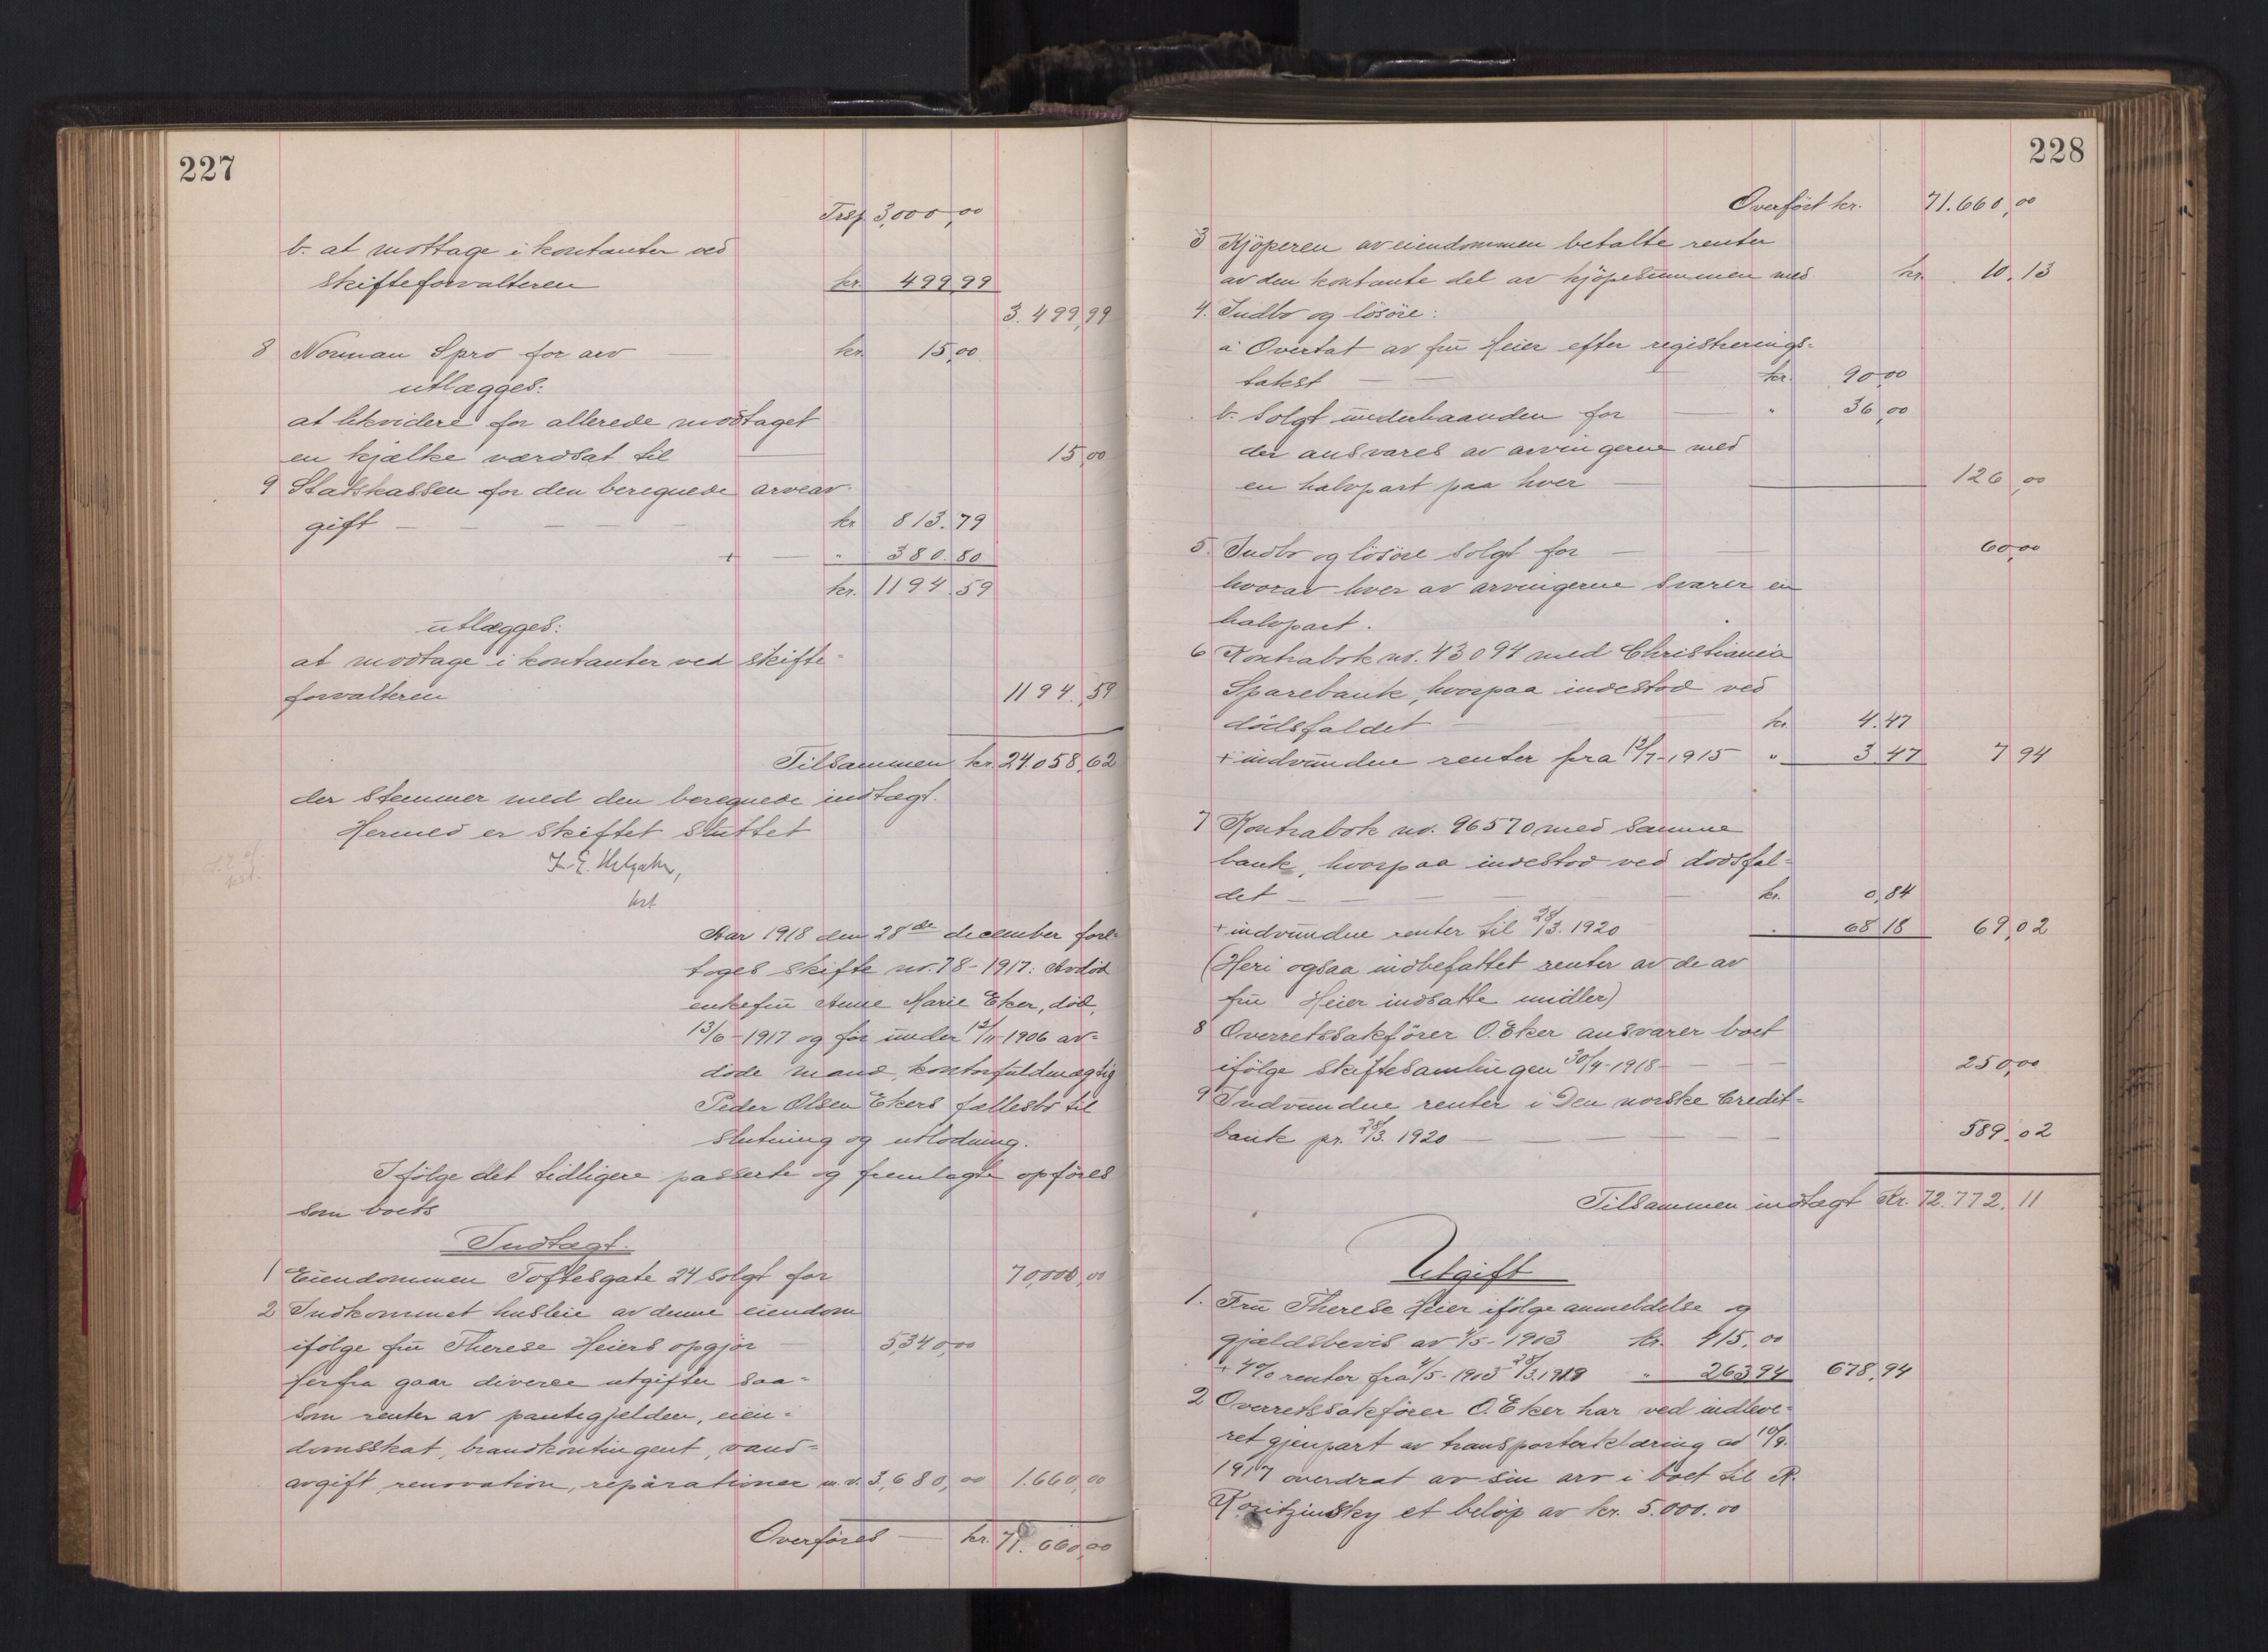 227
Trsp. 3,000,00
b. at mottage i kontanter ved
skifteforvalteren kr. 499,99
3.499,99
8 Norman Spro for arv — kr. 15,00
utlægges:
at likvidere for allerede modtaget
en kjælke værdsat til — 15,00
9 Statskassen for den beregnede arveav-
gift — — — — — kr 813.79
+ — " 380.80
kr. 1194.59
utlægges:
at modtage i kontanter ved skifte-
forvalteren 1194.,59
Tilsammen kr. 24.058,62
der stemmer med den beregnede indtægt.
Hermed er skiftet sluttet
Aar 1918 den 28de december fore-
toges skifte nr. 78-1917: Avdød
enkefru Anne Marie Eker, død,
13/6-1917 og før under 12/11-1906 av-
døde mand, kontorfuldmægtig
Peder Olsen Ekers fællesbo til
slutning og utlodning.
Ifølge det tidligere passerte og fremlagte opføres
som boets
Indtægt.
1 Eiendommen Toftesgate 24 solgt for 70,000,00
2 Indkommet husleie av denne eiendom
ifølge fru Therese Heiers opgjør — 5,340,00
herfra gaar diverse utgifter saa-
som renter av pantegjælden, eien-
domsskat, brandkontingent, vand-
avgift renovation, reparationer m.v. 3,680,00 1.660,00
Overføres — kr. 71.660,00
228
Overført kr. 71.660,00
3 Kjøperen av eiendommen betalte renter
av den kontante del av kjøpesummen med kr. 10.13
4. Indbo og løsøre:
a Overtat av fru Heier efter registrerings-
takst — — — kr. 90,00
b. Solgt underhaanden for — " 36,00
der ansvares av arvingerne med
en halvpart paa hver — 126,00
5. Indbo og løsøre solgt for — — 60,00
hvorav hver av arvingerne svarer en
halvpart.
6 Kontrabok nr. 43094 med Christiania
Sparebank, hvorpaa indestod ved
dødsfaldet — — — kr. 4.47
+ indvundne renter fra 12/7-1915 " 3 47 7 94
7 Kontrabok nr. 96570 med samme
bank, hvorpaa indestod ved dødsfal-
det — — — — — kr. 0,84
+ indvundne renter til 28/3. 1920 " 68 18 69,02
(Heri ogsaa indbefattet renter av de av
fru Heier indsatte midler)
8 Overretssakfører O. Eker ansvarer boet
ifølge skiftesamlingen 30/4-1918 — — — 250,00
9 Indvundne renter i Den norske Credit-
bank pr. 28/3. 1920 — — — — — 589.02
Tilsammen indtægt Kr. 72.772.11
Utgift
1. Fru Therese Heier ifølge anmeldelse og
gjældsbevis av 4/5-1903 kr. 415,00
+ 4% renter fra 4/5-1903 - 28/3.1919 " 263 94 678,94
2 Overretssakfører O. Eker har ved indleve-
ret gjenpart av transporterklæring ad 10/9.
1917 overdrat av sin arv i boet til R.
Koritzinsky et beløp av kr. 5.000.00